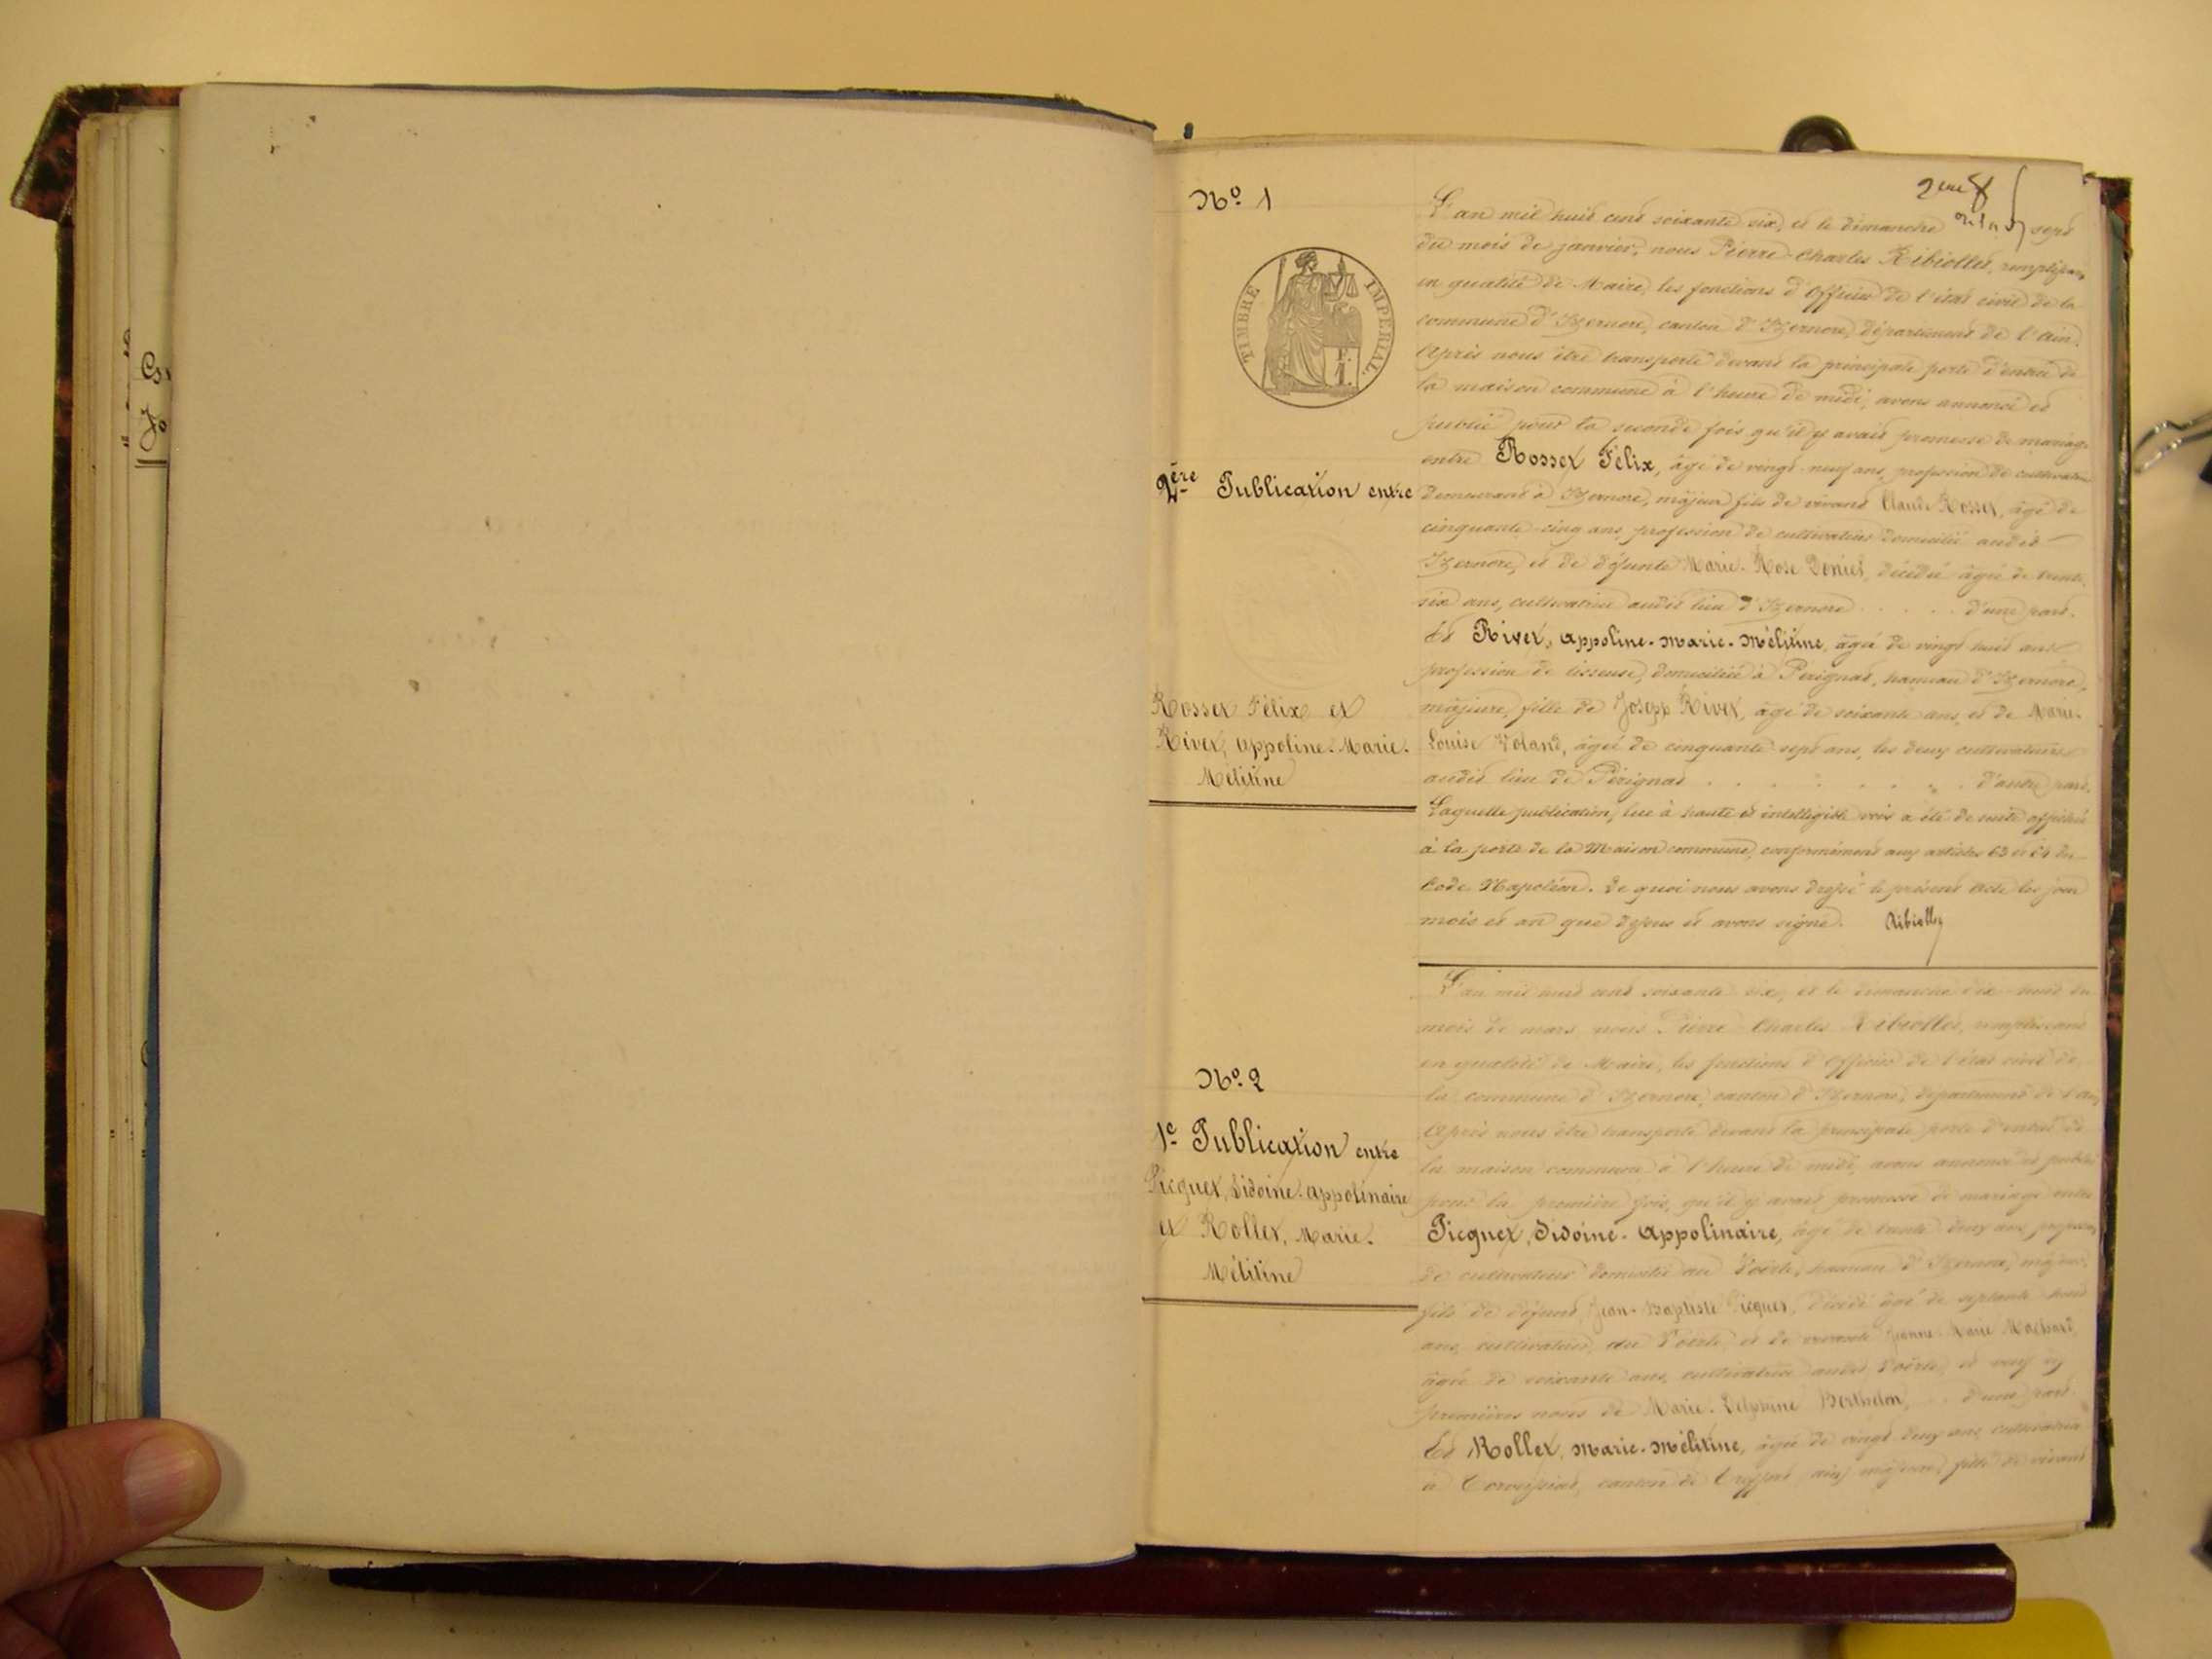 N° 1
TIMBRE IMPERIAL
1 F.
2ère Publication entre
Rosset Félix et
Rivet, Appoline-Marie-
Mélitine
N° 2
1e Publication entre
Picquet, Sidoine-Appolinaire
et Rollet, Marie-
Mélitine
2eme f
L'an mil huit cent soixante six, et le dimanche sept
du mois de janvier, nous Pierre-Charles Ribiollet, remplissant
en qualité de Maire, les fonctions d'Officier de l'état civil de la
commune d'Izernore, canton d'Izernore, département de l'Ain.
Après nous être transporté devant la principale porte d'entrée de
la maison commune à l'heure de midi, avons annoncé et
publié pour la seconde fois qu'il y avait promesse de mariage
entre Rosset Félix, âgé de vingt-neuf ans, profession de cultivateur
demeurant à Izernore, majeur fils de vivant Claude Rosset, âgé de
cinquante-cinq ans, profession de cultivateur domicilié audit
Izernore, et de défunte Marie-Rose Deniet, décédée âgée de trente
six ans, cultivatrice audit lieu d'Izernore . . . . . d'une part.
Et Rivet, Appoline-Marie-Mélitine, âgée de vingt huit ans
profession de tisseuse, domiciliée à Pérignat, hameau d'Izernore,
majeure, fille de Joseph Rivet, âgé de soixante ans, et de Marie-
Louise Voland, âgée de cinquante sept ans, les deux cultivateurs
audit lieu de Pérignat . . . . . . . . d'autre part.
Laquelle publication, lue à haute et intelligible voix a été de suite affichée
à la porte de la Maison commune, conformément aux articles 63 et 64 du
Code Napoléon. De quoi nous avons dressé le présent acte les jour
mois et an que dessus et avons signé. Ribiollet
L'an mil huit cent soixante six, et le dimanche dix-huit du
mois de mars nous Pierre Charles Ribiollet, remplissant
en qualité de Maire, les fonctions d'Officier de l'état civil de
la commune d'Izernore, canton d'Izernore, département de l'Ain
Après nous être transporté devant la principale porte d'entrée de
la maison commune à l'heure de midi, avons annoncé et publié
pour la première fois, qu'il y avait promesse de mariage entre
Picquet, Sidoine-Appolinaire, âgé de trente deux ans, profession
de cultivateur domicilié au Voërle, hameau d'Izernore, majeur,
fils de défunt Jean-Baptiste Picquet, décédé âgé de septante huit
ans, cultivateur, au Voërle, et de vivante Jeanne-Marie Machard
âgée de soixante ans, cultivatrice audit Voërle, et veuf en
premières noces de Marie-Delphine Berthelon, . . d'une part.
Et Rollet, Marie-Mélitine, âgée de vingt deux ans, cultivatrice
à canton de Treffort (Ain) majeure, fille de vivant